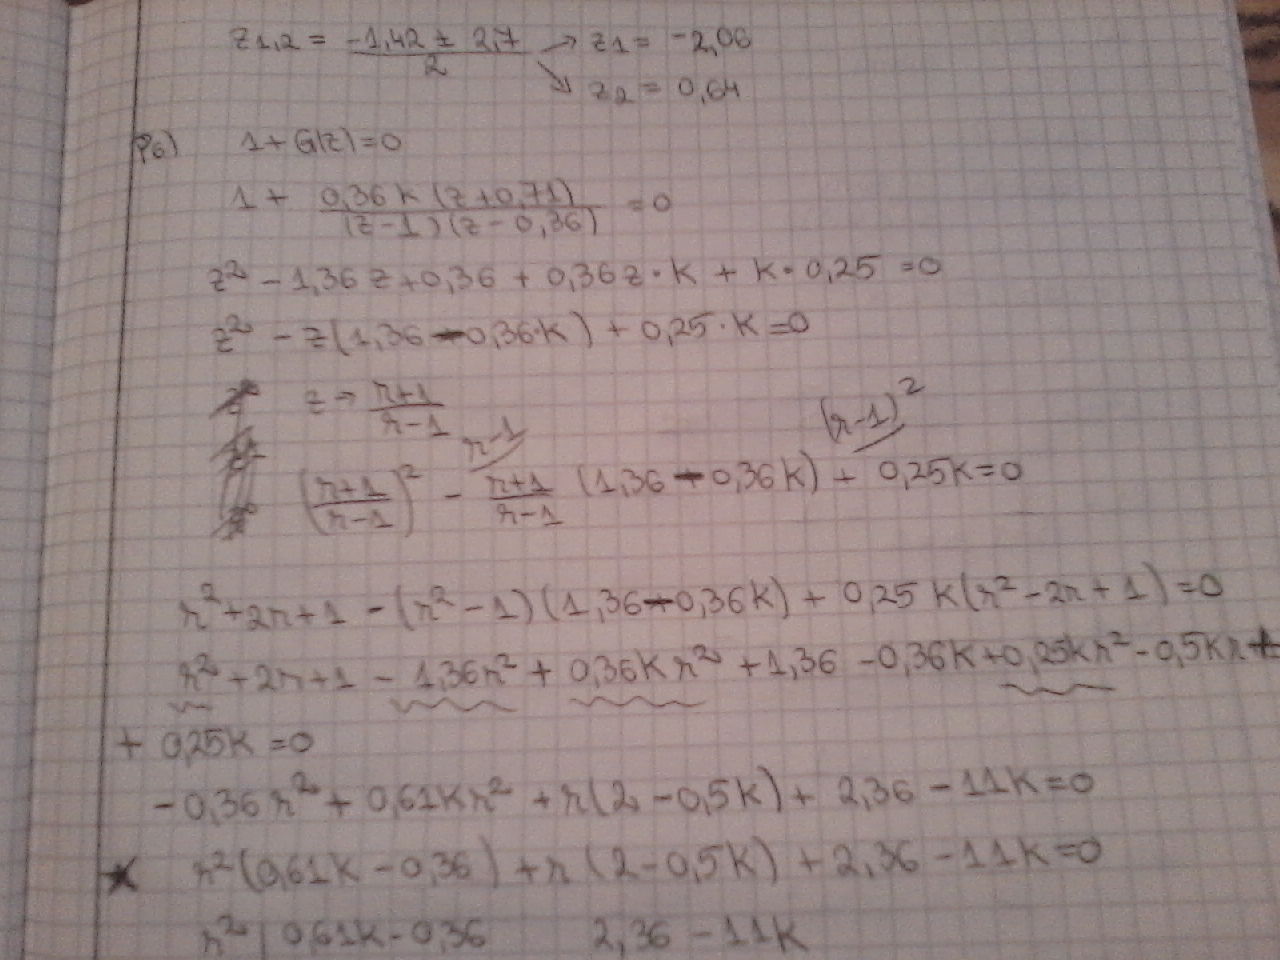 z1,2 = (-1,42 ± 2,7)/2 → z1 = -2,06
↘ z2 = 0,64
P6) 1 + G(z) = 0
1 + 0,36k (z+0,71)/((z-1)(z-0,36)) = 0
z² - 1,36z + 0,36 + 0,36z·k + k·0,25 = 0
z² - z(1,36 - 0,36·k) + 0,25·k = 0
z → (r+1)/(r-1)
r-1 (r-1)²
((r+1)/(r-1))² - (r+1)/(r-1) (1,36 - 0,36k) + 0,25k = 0
r² + 2r + 1 - (r² - 1)(1,36 - 0,36k) + 0,25k(r² - 2r + 1) = 0
r² + 2r + 1 - 1,36r² + 0,36kr² + 1,36 - 0,36k + 0,25kr² - 0,5kr +
+ 0,25k = 0
-0,36r² + 0,61kr² + r(2 - 0,5k) + 2,36 - 11k = 0
* r²(0,61k - 0,36) + r(2 - 0,5k) + 2,36 - 11k = 0
r² | 0,61k - 0,36 2,36 - 11k